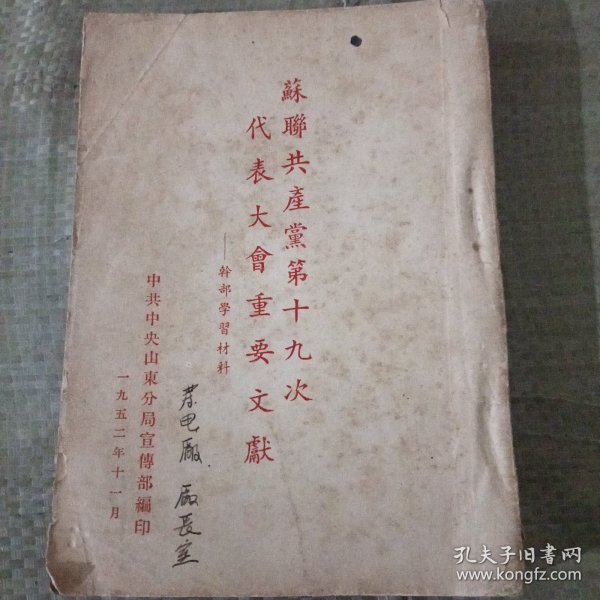 蘇聯共產黨第十九次
代表大會重要文獻
——幹部學習材料
電廠 廠長室
中共中央山東分局宣傳部編印
一九五二年十一月
孔夫子旧书网
www.kongfz.com